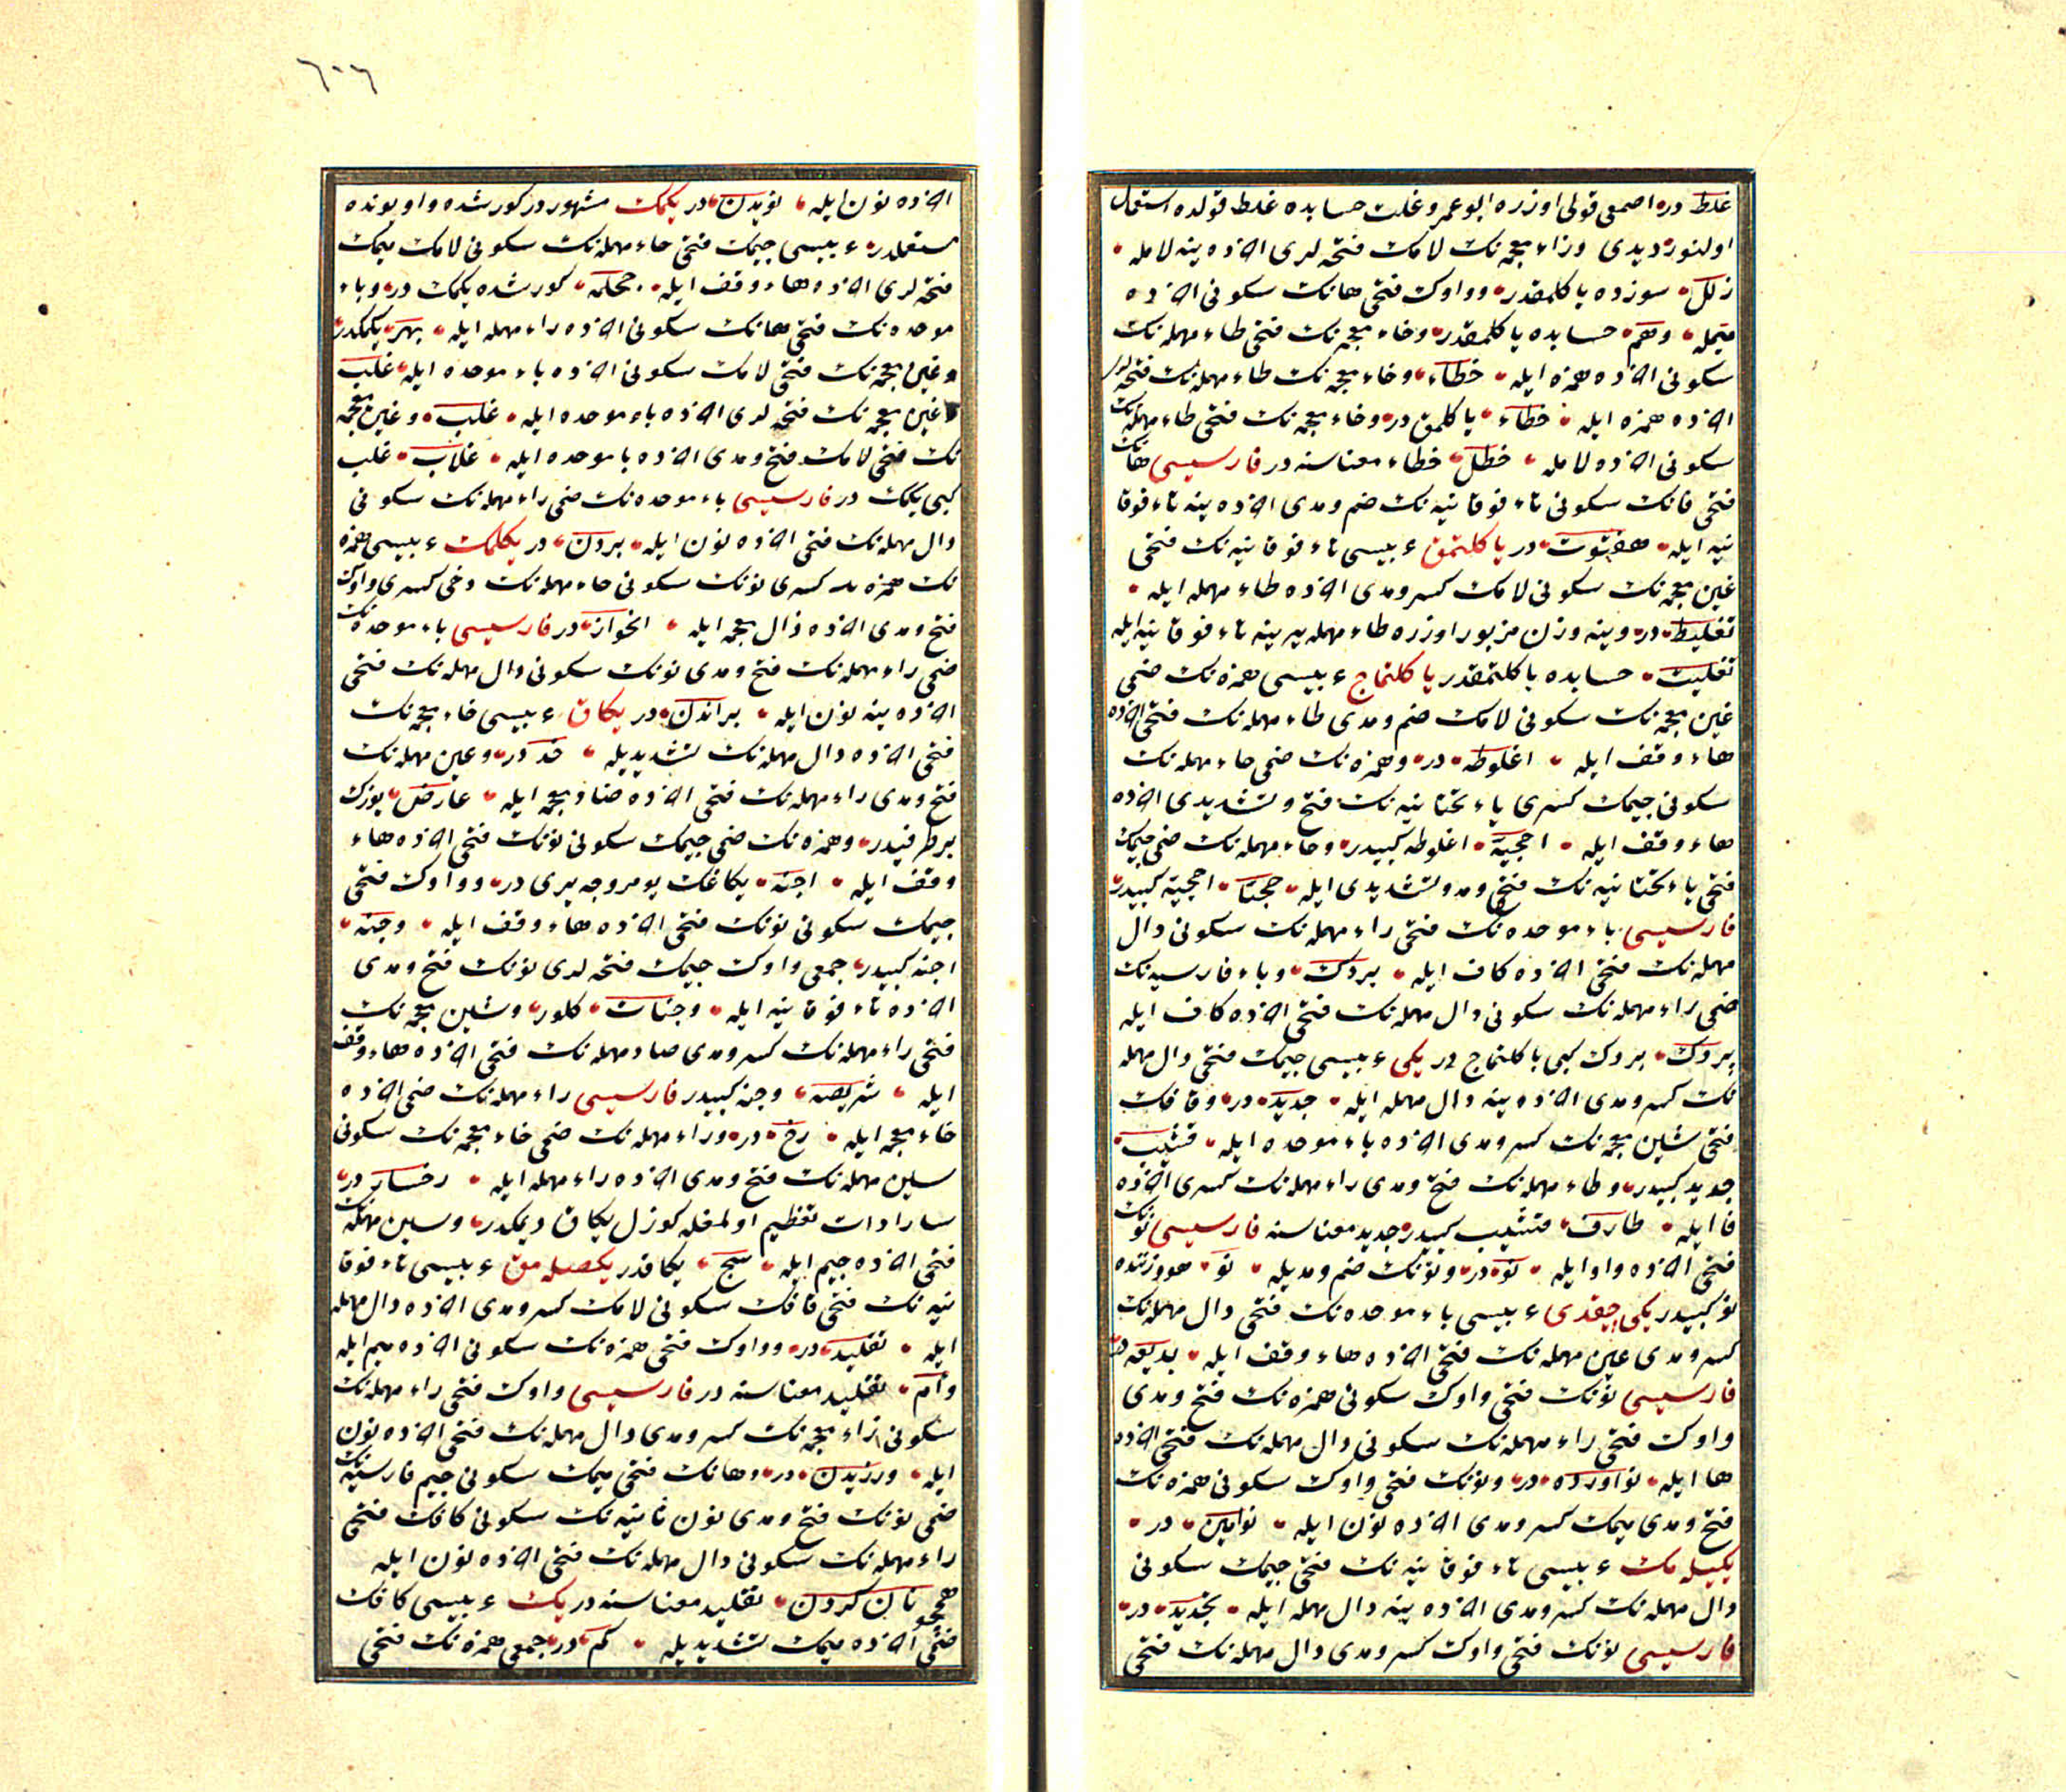 غلط در اصمعی قولی اوزره ابو عمرو غلت حسابده غلط قولده استعمال
اولنور دیدی وزاء معجمه‌نک لامک فتحه‌لری آخرده ینه لامله
زلل سوزده یا کلمقدر و واوک فتحی هانک سکونی آخرده
میمله وهم حسابده یا کلمقدر وخاء معجمه‌نک فتحی طاء مهمله‌نک
سکونی آخرده همزه ایله خطاء وخاء معجمه‌نک طاء مهمله‌نک فتحه‌لری
آخرده همزه ایله خطاء یا کلمق در وخاء معجمه‌نک فتحی طاء مهمله‌نک
سکونی آخرده لامله خطل خطاء معناسنه در فارسیسی هانک
فتحی فانک سکونی تاء فوقانیه‌نک ضم ومدی آخرده ینه تاء فوقا
نیه ایله هفتوت در یا کلتمق عربیسی تاء فوقانیه‌نک فتحی
غین معجمه‌نک سکونی لامک کسر ومدی آخرده طاء مهمله ایله
تغلیط در وینه وزن مزبور اوزره طاء مهمله یرینه تاء فوقانیه ایله
تغلیت حسابده یا کلتمقدر یا کلتماج عربیسی همزه‌نک ضمی
غین معجمه‌نک سکونی لامک ضم ومدی طاء مهمله‌نک فتحی آخرده
هاء وقف ایله اغلوطه در وهمزه‌نک ضمی حاء مهمله‌نک
سکونی جیمک کسری یاء تحتانیه‌نک فتح وتشدیدی آخرده
هاء وقف ایله احجیه اغلوطه کبیدر وحاء مهمله‌نک ضمی جیمک
فتحی یاء تحتانیه‌نک فتحی ومد وتشدیدی ایله حجیا احجیه کبیدر
فارسیسی باء موحده‌نک فتحی راء مهمله‌نک سکونی دال
مهمله‌نک فتحی آخرده کاف ایله بردک وباء فارسیه‌نک
ضمی راء مهمله‌نک سکونی دال مهمله‌نک فتحی آخرده کاف ایله
پردک بردک کبی یا کلتماج در یکی عربیسی جیمک فتحی دال مهمله
نک کسر ومدی آخرده ینه دال مهمله ایله جدید در وقافک
فتحی شین معجمه‌نک کسر ومدی آخرده باء موحده ایله قشیب
جدید کبیدر وطاء مهمله‌نک فتح ومدی راء مهمله‌نک کسری آخرده
فا ایله طارف قشیب کبیدر جدید معناسنه فارسیسی نونک
فتحی آخرده واو ایله نو در ونونک ضم ومدیله نو هو وزننده
نو کبیدر یکی چقدی عربیسی باء موحده‌نک فتحی دال مهمله‌نک
کسر ومدی عین مهمله‌نک فتحی آخرده هاء وقف ایله بدیعه در
فارسیسی نونک فتحی واوک سکونی همزه‌نک فتح ومدی
واوک فتحی راء مهمله‌نک سکونی دال مهمله‌نک فتحی آخرده
ها ایله نوآورده در ونونک فتحی واوک سکونی همزه‌نک
فتح ومدی میمک کسر ومدی آخرده نون ایله نوآمین در
یکیله مک عربیسی تاء فوقانیه‌نک فتحی جیمک سکونی
دال مهمله‌نک کسر ومدی آخرده ینه دال مهمله ایله تجدید در
فارسیسی نونک فتحی واوک کسر ومدی دال مهمله‌نک فتحی
٦٠٦
آخرده نون ایله نویدن در یکمک مشهور در کورشده واویونده
مستعملدر عربیسی جیمک فتحی حاء مهمله‌نک سکونی لامک میمک
فتحه‌لری آخرده هاء وقف ایله جحلمه کورشده یکمک در وباء
موحده‌نک فتحی هانک سکونی آخرده راء مهمله ایله بهر یکمکدر
وغین معجمه‌نک فتحی لامک سکونی آخرده باء موحده ایله غلب
وغین معجمه‌نک فتحه‌لری آخرده باء موحده ایله غلب وغین معجمه
نک فتحی لامک فتح ومدی آخرده با موحده ایله غلاب غلب
کبی یکمک در فارسیسی باء موحده‌نک ضمی راء مهمله‌نک سکونی
دال مهمله‌نک فتحی آخرده نون ایله بردن در یکلمک عربیسی همزه
نک همزه کسری نونک سکونی حاء مهمله‌نک دخی کسری واوک
فتح ومدی آخرده ذال معجمه ایله انحواذ در فارسیسی باء موحده‌نک
ضمی راء مهمله‌نک فتح ومدی نونک سکونی دال مهمله‌نک فتحی
آخرده ینه نون ایله براندن در یکاق عربیسی خاء معجمه‌نک
فتحی آخرده دال مهمله‌نک تشدیدیله خد در وعین مهمله‌نک
فتح ومدی راء مهمله‌نک فتحی آخرده ضاد معجمه ایله عارض یوزک
بر طرفیدر وهمزه‌نک ضمی جیمک سکونی نونک فتحی آخرده هاء
وقف ایله اجنه یکاغک یومروجه یری در و واوک فتحی
جیمک سکونی نونک فتحی آخرده هاء وقف ایله وجنه
اجنه کبیدر جمعی واوک جیمک فتحه‌لری نونک فتح ومدی
آخرده تاء فوقانیه ایله وجنات کلور وشین معجمه‌نک
فتحی راء مهمله‌نک کسر ومدی صاد مهمله‌نک فتحی آخرده هاء وقف
ایله شریصه وجنه کبیدر فارسیسی راء مهمله‌نک ضمی آخرده
خاء معجمه ایله رخ در وراء مهمله‌نک ضمی خاء معجمه‌نک سکونی
سین مهمله‌نک فتح ومدی آخرده راء مهمله ایله رخسار در
سار ادات تعظیم اولمغله کوزل یکاق دیمکدر وسین مهمله‌نک
فتحی آخرده جیم ایله سج یکاقدر یکصله مق عربیسی تاء فوقا
نیه‌نک فتحی قافک سکونی لامک کسر ومدی آخرده دال مهمله
ایله تقلید در و واوک فتحی همزه‌نک سکونی آخرده میم ایله
وأم تقلید معناسنه در فارسیسی واوک فتحی راء مهمله‌نک
سکونی زاء معجمه‌نک کسر ومدی دال مهمله‌نک فتحی آخرده نون
ایله ورزیدن در وهانک فتحی میمک سکونی جیم فارسیه‌نک
ضمی نونک فتح ومدی نون ثانیه‌نک سکونی کافک فتحی
راء مهمله‌نک سکونی دال مهمله‌نک فتحی آخرده نون ایله
همچو نان کردن تقلید معناسنه در یک عربیسی کافک
ضمی آخرده میمک تشدیدیله کم در جمعی همزه‌نک فتحی